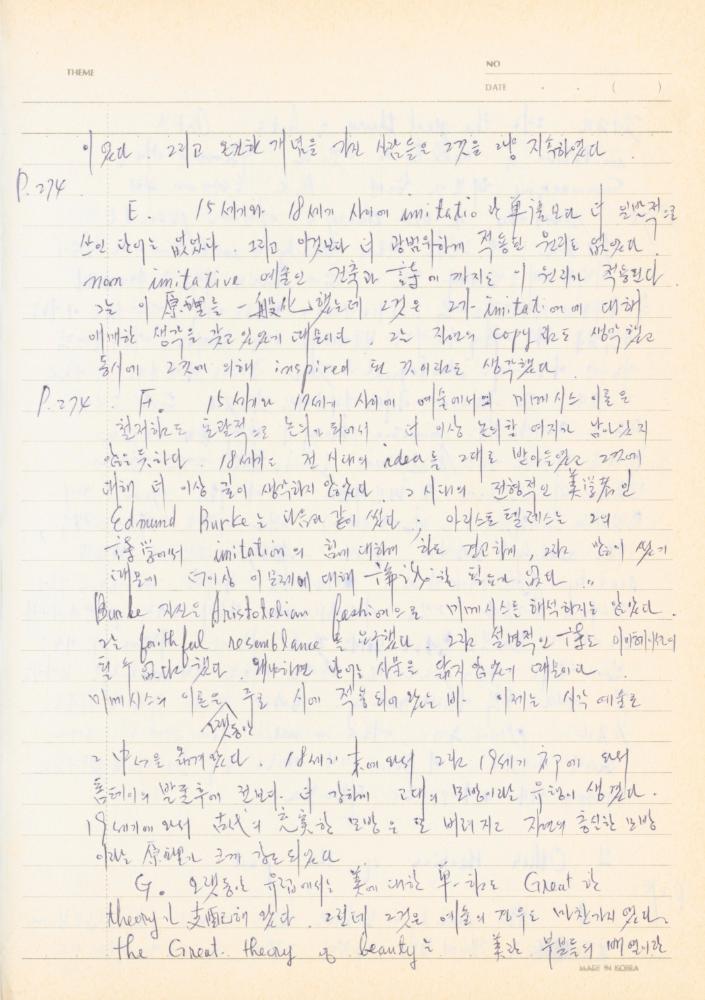 THEME
NO
DATE . . ( )
이 였다. 그리고 온건한 개념을 가진 사람들은 그것을 지속하였다.
P.274
E. 15세기와 18세기 사이에 imitatio 란 單語보다 더 일반적으로
쓰인 단어는 없었다. 그리고 이것보다 더 광범위하게 적용된 원리도 없었다.
non imitative 예술인 건축과 詩에 까지도 이 원리가 적용된다.
그는 이 原理를 一般化했는데 그것은 그가 imitation에 대해
애매한 생각을 갖고 있었기 때문이다. 그는 자연의 copy라고도 생각했고
동시에 그것에 의해 inspired 된 것이라고도 생각했다.
P.274 F. 15세기와 17세기 사이에 예술에서의 미메시스 이론은
철저하고도 포괄적으로 논의가 되어서 더 이상 논의할 여지가 남아있지
않은 듯하다. 18세기는 전 시대의 idea를 그대로 받아들였고 그것에
대해 더 이상 깊이 생각하지 않았다. 그 시대의 전형적인 美學者인
Edmund Burke는 다음과 같이 썼다; 아리스토텔레스는 그의
詩學에서 imitation의 힘에 대하여 하도 견고하게, 그리고 많이 썼기
때문에 더이상 이 문제에 대해 할 필요가 없다."
Burke 자신은 Aristotelian fashion으로 미메시스를 해석하지는 않았다.
그는 faithful resemblance를 요구했다. 그리고 설명적인 詩도
될 수 없다고 했다. 왜냐하면 단어는 사물을 닮지 않았기 때문이다.
미메시스의 이론은 오랫동안 주로 시에 적용되어 왔는 바 이제는 시각 예술로
그 中心을 옮겨왔다. 18세기 末에 와서 그리고 19세기 초에 와서
폼페이의 발굴후에 전보다 더 강하게 고대의 모방이라는 유행이 생겼다.
19세기에 와서 古代의 충실한 모방은 버려지고 자연의 충실한 모방
이라는 原理가 크게 강조되었다.
G. 오랫동안 유럽에서는 美에 대한 單一하고도 Great 한
theory가 支配해 왔다. 그런데 그것은 예술의 경우도 마찬가지였다.
the Great theory of beauty는 美란 부분들의 배열이란
MADE IN KOREA